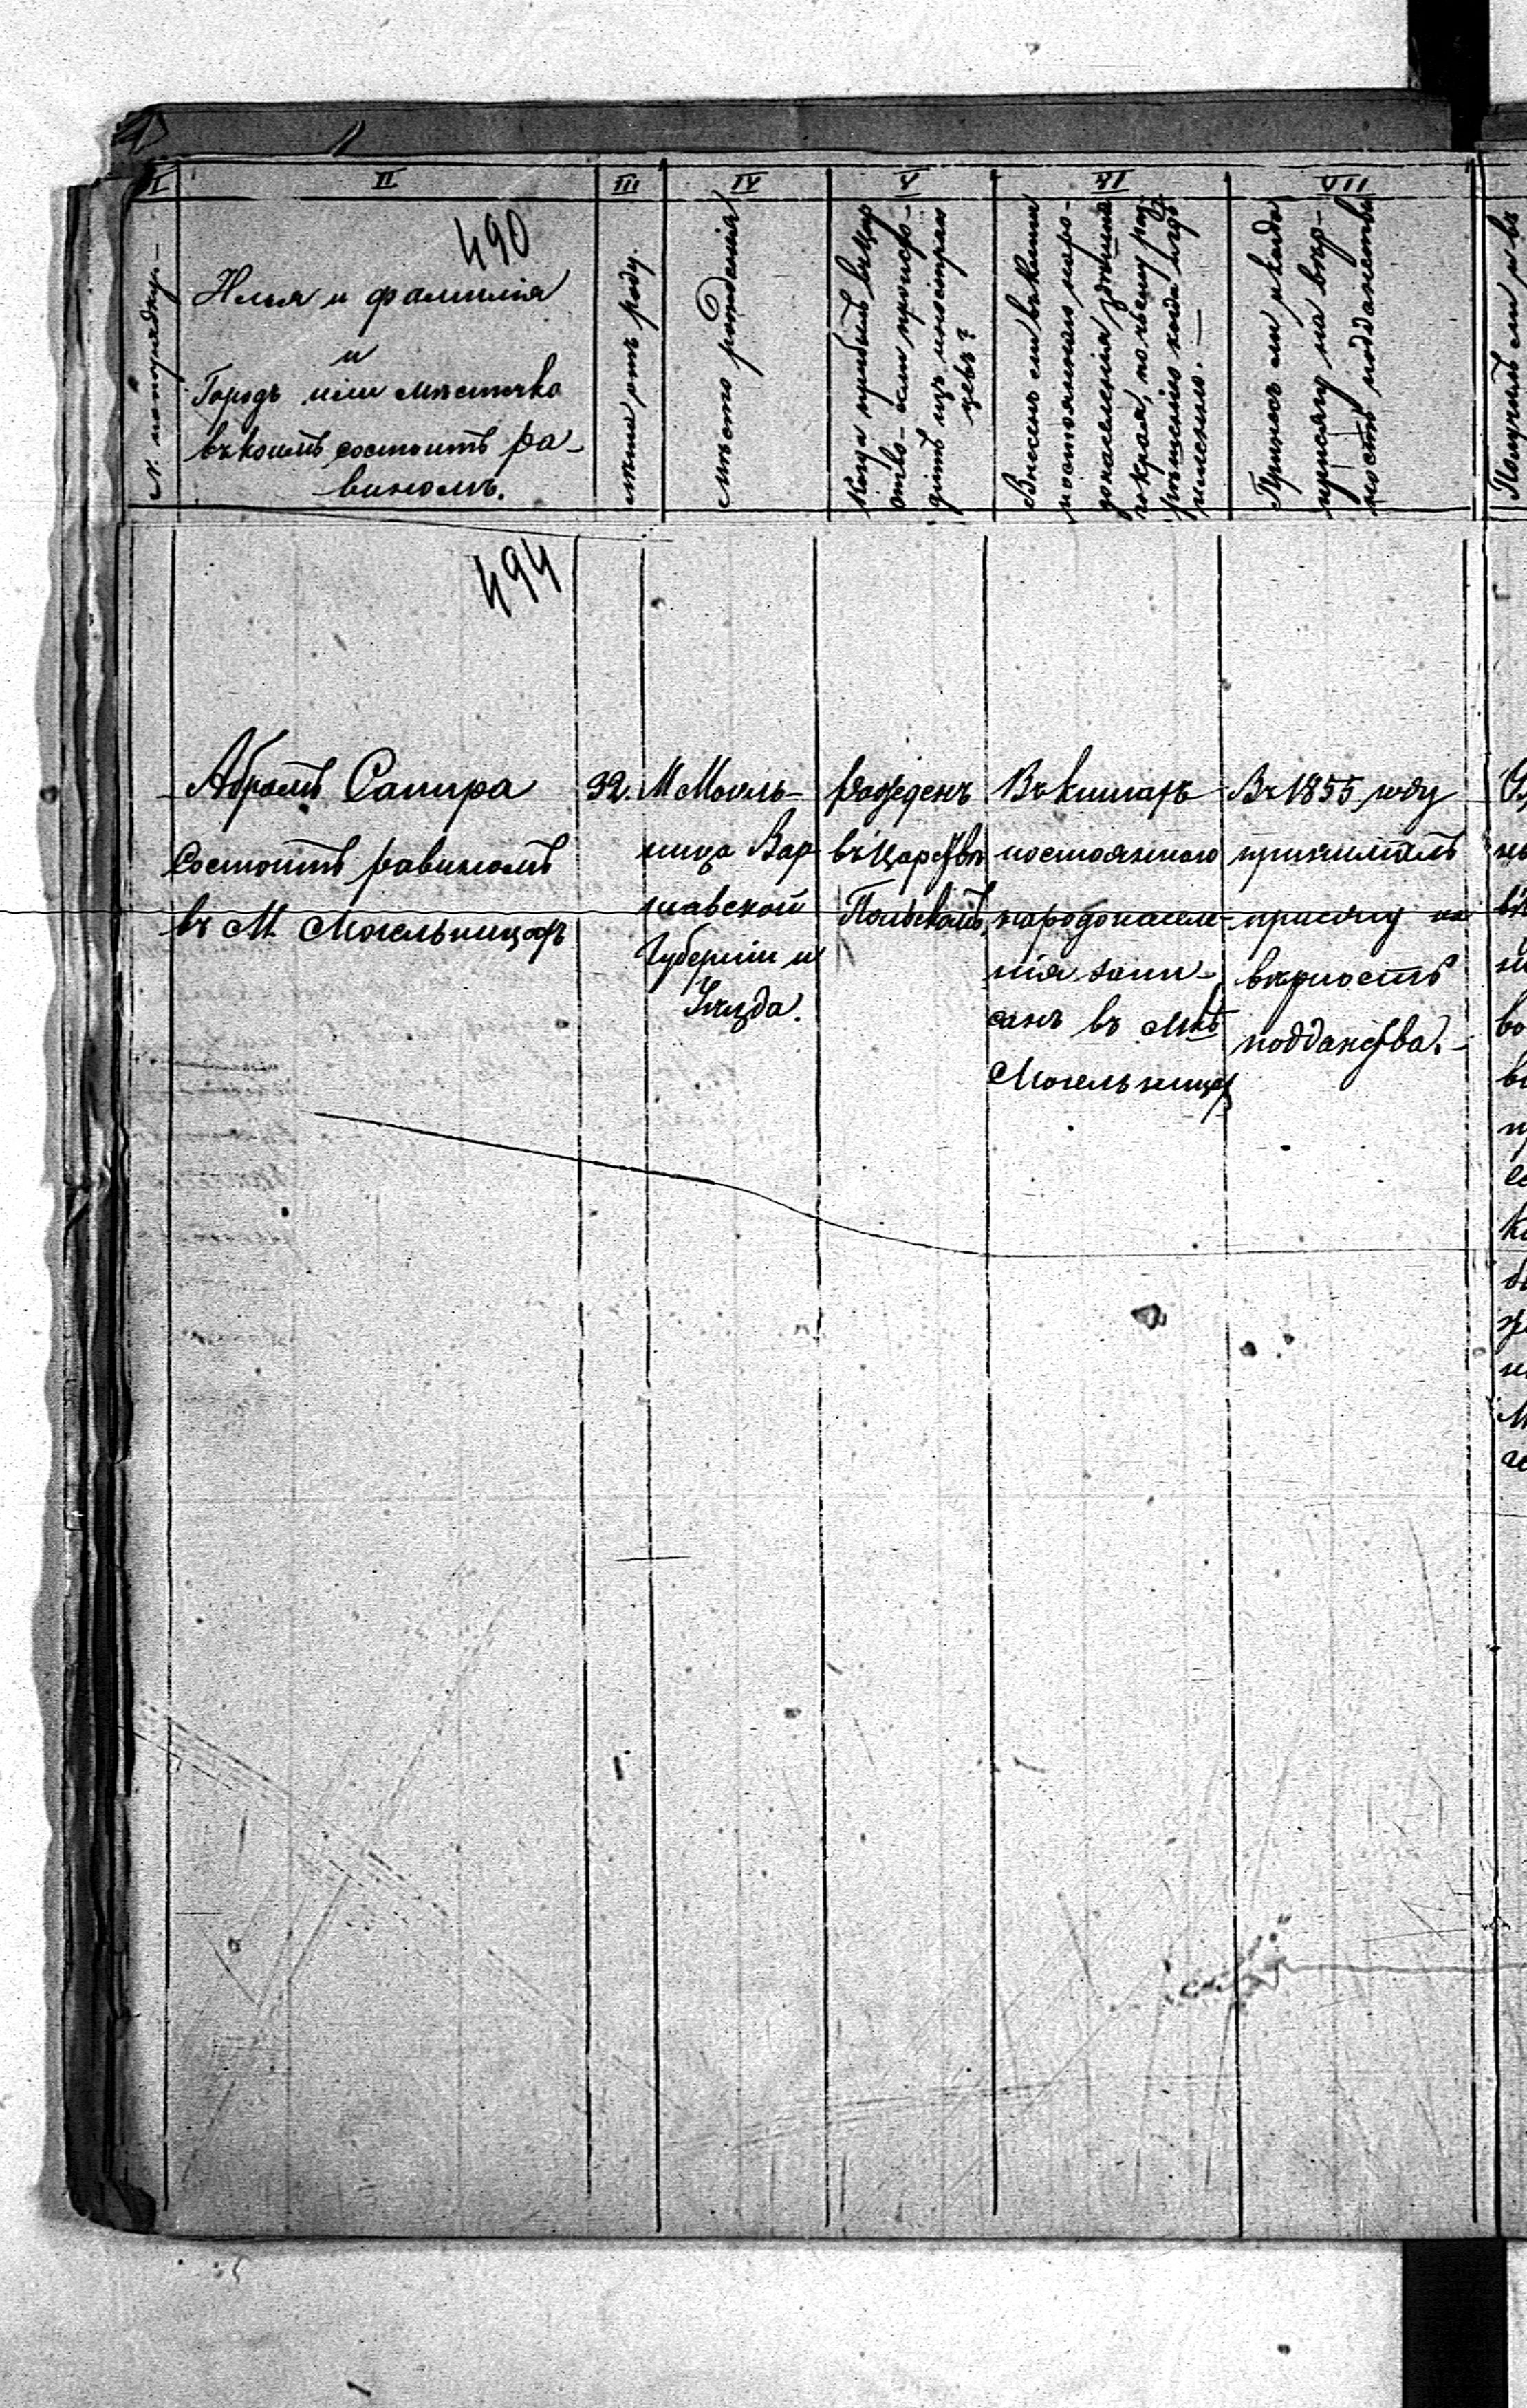 I
II
III
IV
V
VI
VII
490
№ попорядку.—
Имя и фамилія
и
Городъ или мѣстечко
въ коемъ состоитъ ра-
виномъ.
лѣта отъ роду.
мѣсто рожденія
Когда прибылъ въ Цар
ство - если происхо-
дитъ изъ иностран
цевъ?
Внесенъ ли въ книги
постояннаго наро-
донаселенія здѣшня
го края, по чьему раз
рѣшенію когда и гдѣ
именно. —
Принесъ ли и когда
присягу на вѣр-
ность подданства
Получилъ ли
494
Абрамъ Сапира
Состоитъ равиномъ
въ М. Могельницахъ
32.
М Могль-
ница Вар
шавской
Губерніи и
Уѣзда.
рожденъ
въ Царствѣ
Польскомъ,
Въ книгахъ
постояннаго
народонаселе-
нія запи-
санъ въ Мкѣ
Могельницах
Въ 1855 году
присягу на
вѣрность
подданства.-